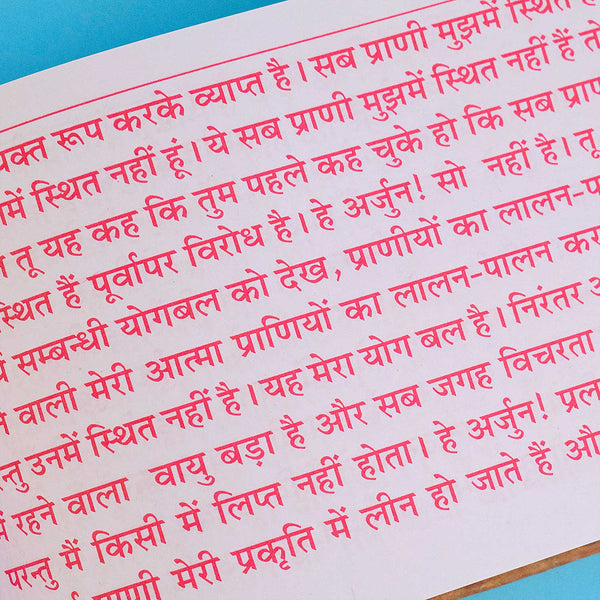 रूप करके व्याप्त है। सब प्राणी मुझमें स्थित
स्थित नहीं हूं। ये सब प्राणी मुझमें स्थित नहीं हैं तो
तू यह कह कि तुम पहले कह चुके हो कि सब
हैं पूर्वापर विरोध है। हे अर्जुन! सो नहीं है। तू
सम्बन्धी योगबल को देख, प्राणीयों का लालन-
वाली मेरी आत्मा प्राणियों का लालन-पालन
उनमें स्थित नहीं है। यह मेरा योग बल है। निरंतर
रहने वाला वायु बड़ा है और सब जगह विचरता
परन्तु मैं किसी में लिप्त नहीं होता। हे अर्जुन!
प्राणी मेरी प्रकृति में लीन हो जाते हैं